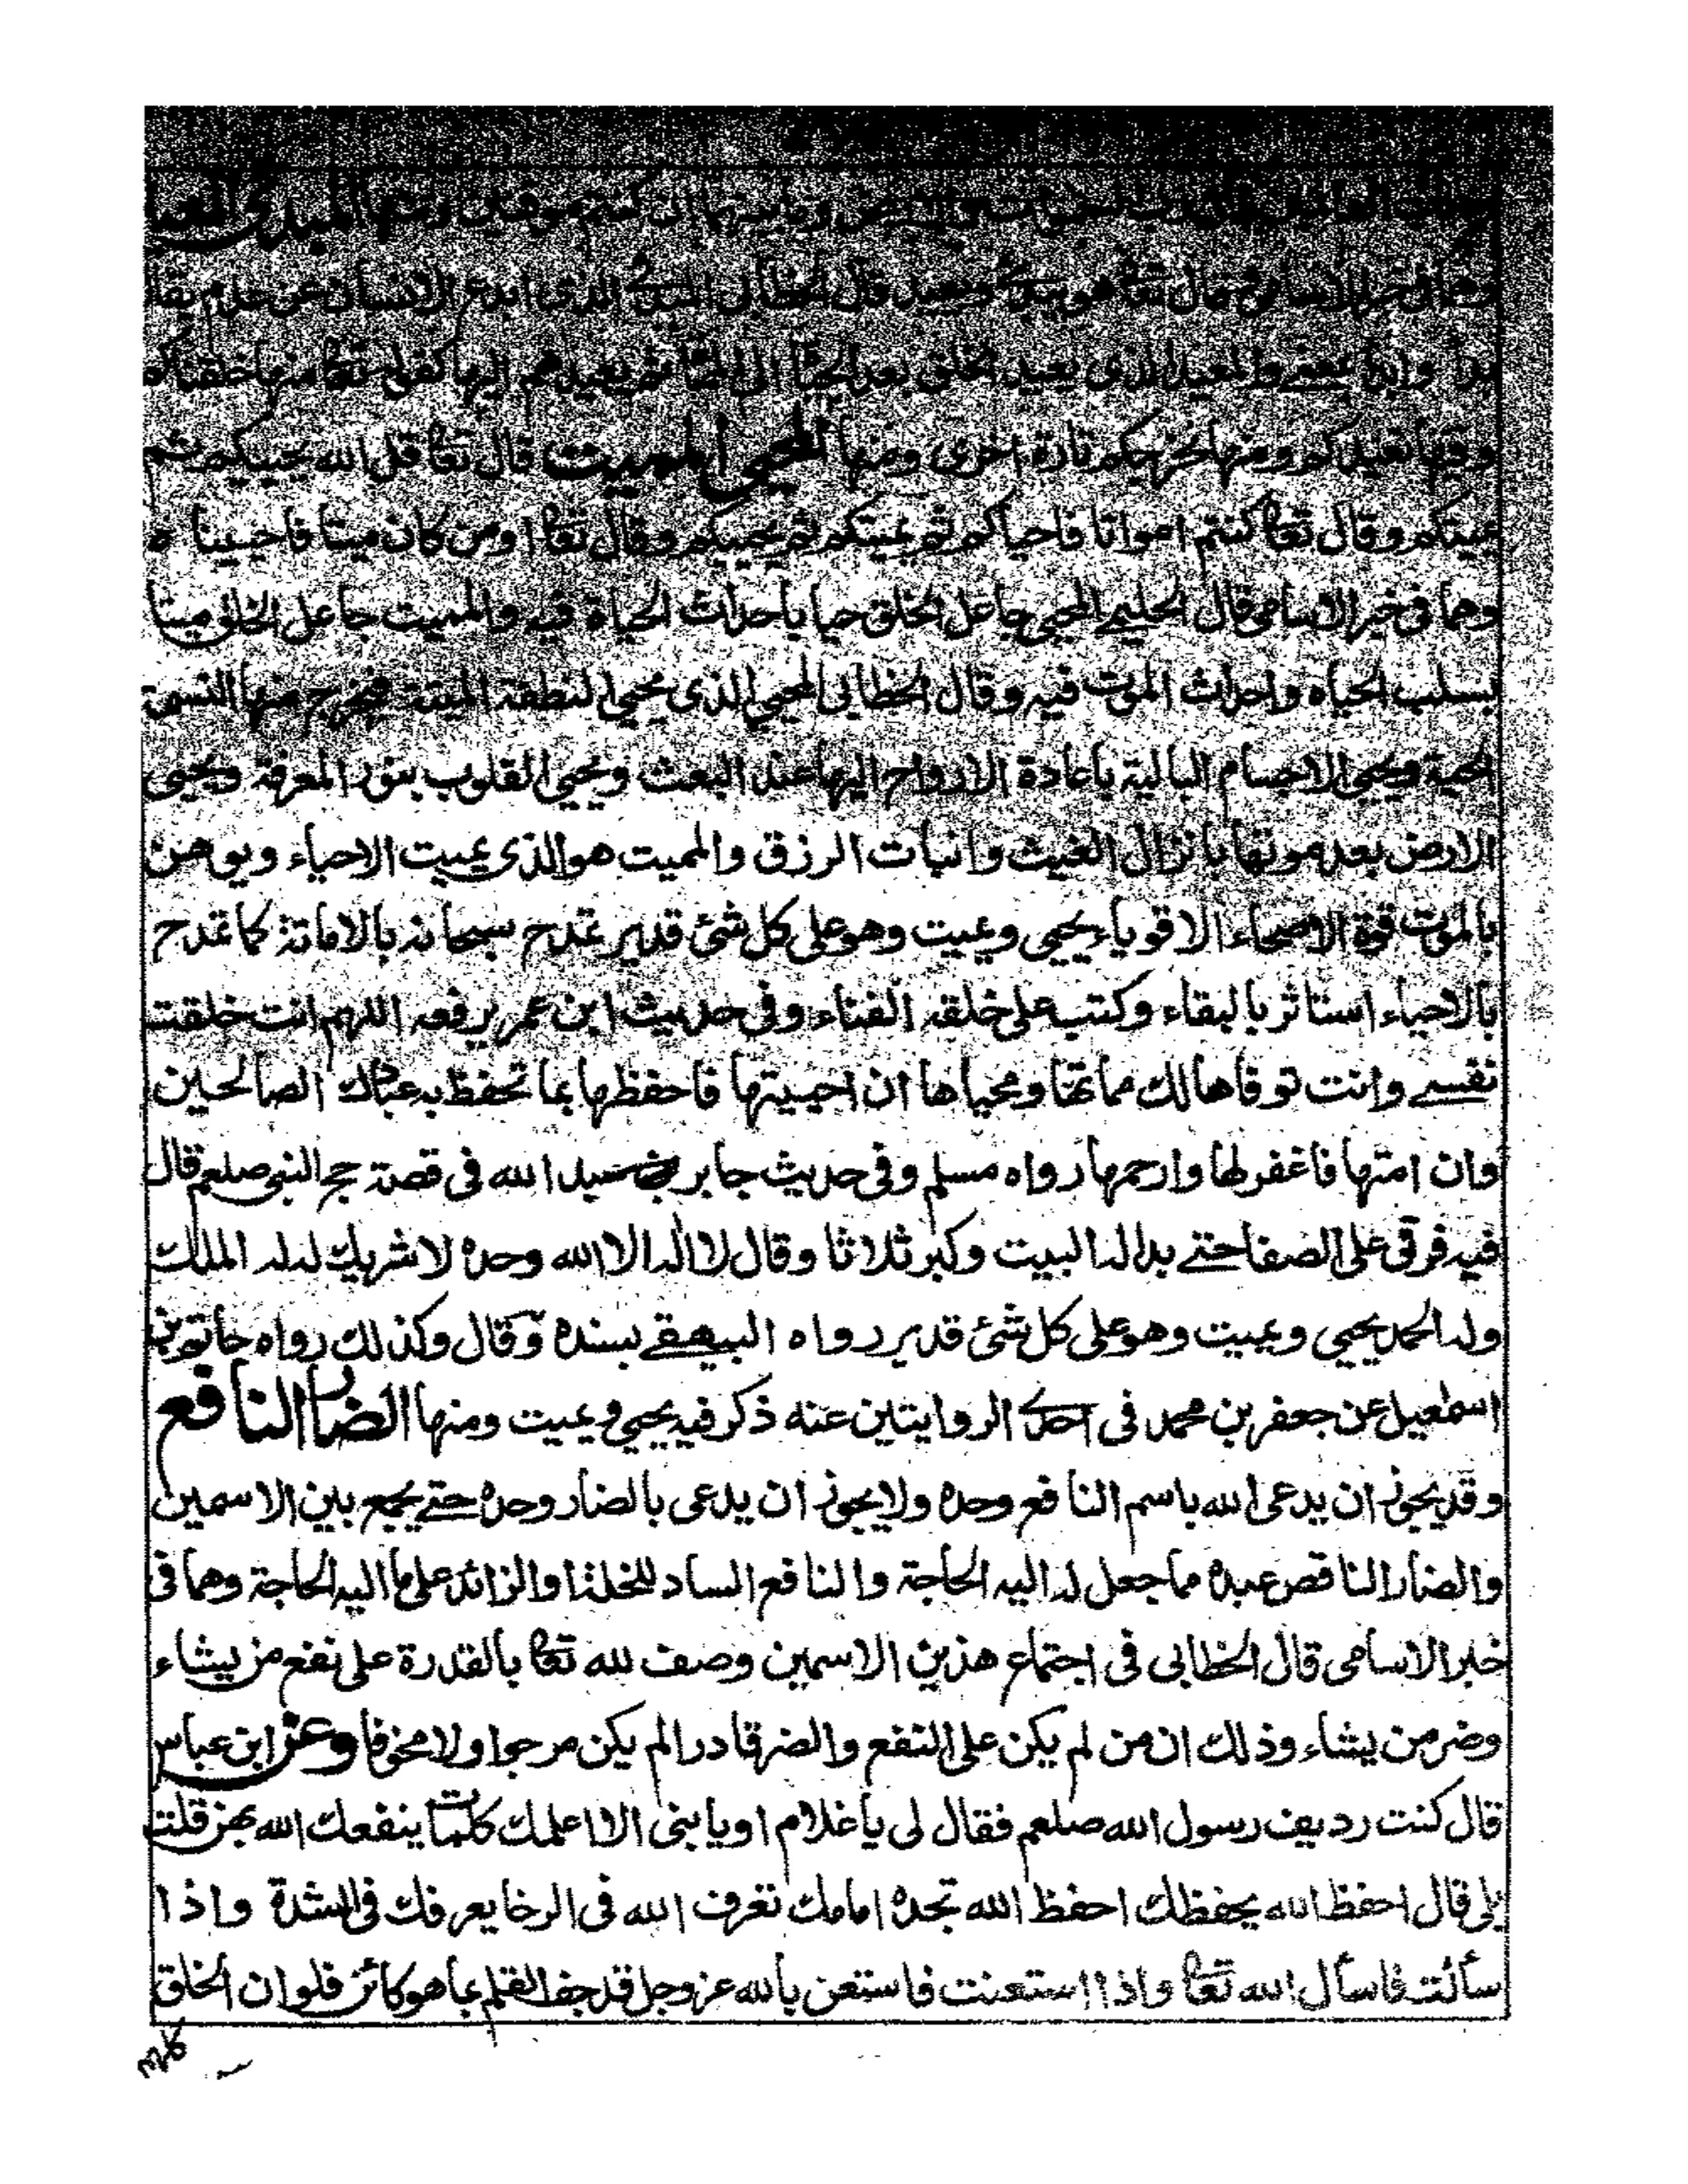 السموات والارض وما بينهما ان كنتم موقنين ومنها المبدئ المعيد
وهما فى خبر الاسامى قال تعا هو يبدئ ويعيد قال الخطابى المبدئ الذى ابدع الانسان عن عدم يقال
بدأ وابدأ بمعنے والمعيد الذى يعيد الخلق بعد الحياة الى الممات ثم يعيدهم اليها كقوله تعا منها خلقناكم
وفيها نعيدكم ومنها نخرجكم تارة اخرى ومنها المحيى المميت قال تعا قل الله يحييكم ثم
يميتكم وقال تعا كنتم امواتا فاحياكم ثم يميتكم ثم يحييكم وقال تعا اومن كان ميتا فاحييناه
وهما فى خبر الاسامى قال الحليمے المحيى جاعل الخلق حيا باحداث الحياة فيه والمميت جاعل الخلق ميتا
بسلب الحياه واحداث الموت فيه وقال الخطابى المحيى الذى يحيى النطفة الميتة فيخرج منها النسمة
الحية ويحيى الاجسام البالية باعادة الارواح اليها عند البعث ويحيى القلوب بنور المعرفة ويحيى
الارض بعد موتها بانزال الغيث وانبات الرزق والمميت هو الذى يميت الاحياء ويوهن
بالموت قوة الاصحاء الاقوياء يحيى ويميت وهو على كل شئ قدير تمدح سبحانه بالاماتة كما تمدح
بالاحياء استاثر بالبقاء وكتب على خلقه الفناء وفى حديث ابن عمر يرفعه اللهم انت خلقت
نفسے وانت توفاها لك مماتها ومحياها ان احييتها فاحفظها بما تحفظ به عبادك الصالحين
وان امتها فاغفر لها وارحمها رواه مسلم وفى حديث جابر بن عبد الله فى قصة حج النبى صلعم قال
فيه فرقى على الصفا حتے بدا له البيت وكبر ثلاثا وقال لا اله الا الله وحده لا شريك له له الملك
وله الحمد يحيى ويميت وهو على كل شئ قدير رواه البيهقے بسنده وقال وكذلك رواه حاتم بن
اسمعيل عن جعفر بن محمد فى احدى الروايتين عنه ذكر فيه يحيى ويميت ومنها الضار النافع
وقد يجوز ان يدعى الله باسم النافع وحده ولا يجوز ان يدعى بالضار وحده حتے يجمع بين الاسمين
والضار الناقص عبده مما جعل له اليه الحاجة والنافع الساد للخلة او الزائد على ما اليه الحاجة وهما فى
خبر الاسامى قال الخطابى فى اجتماع هذين الاسمين وصف لله تعا بالقدرة على نفع من يشاء
وضر من يشاء وذلك ان من لم يكن على النفع والضر قادرا لم يكن مرجوا ولا مخوفا وعن ابن عباس
قال كنت رديف رسول الله صلعم فقال لى يا غلام او يا بنى الا اعلمك كلمات ينفعك الله بهن قلت
بلى قال احفظ الله يحفظك احفظ الله تجده امامك تعرف الله فى الرخا يعرفك فى الشدة واذا
سألت فاسأل الله تعا واذا استعنت فاستعن بالله عز وجل قد جف القلم بما هو كائن فلو ان الخلق